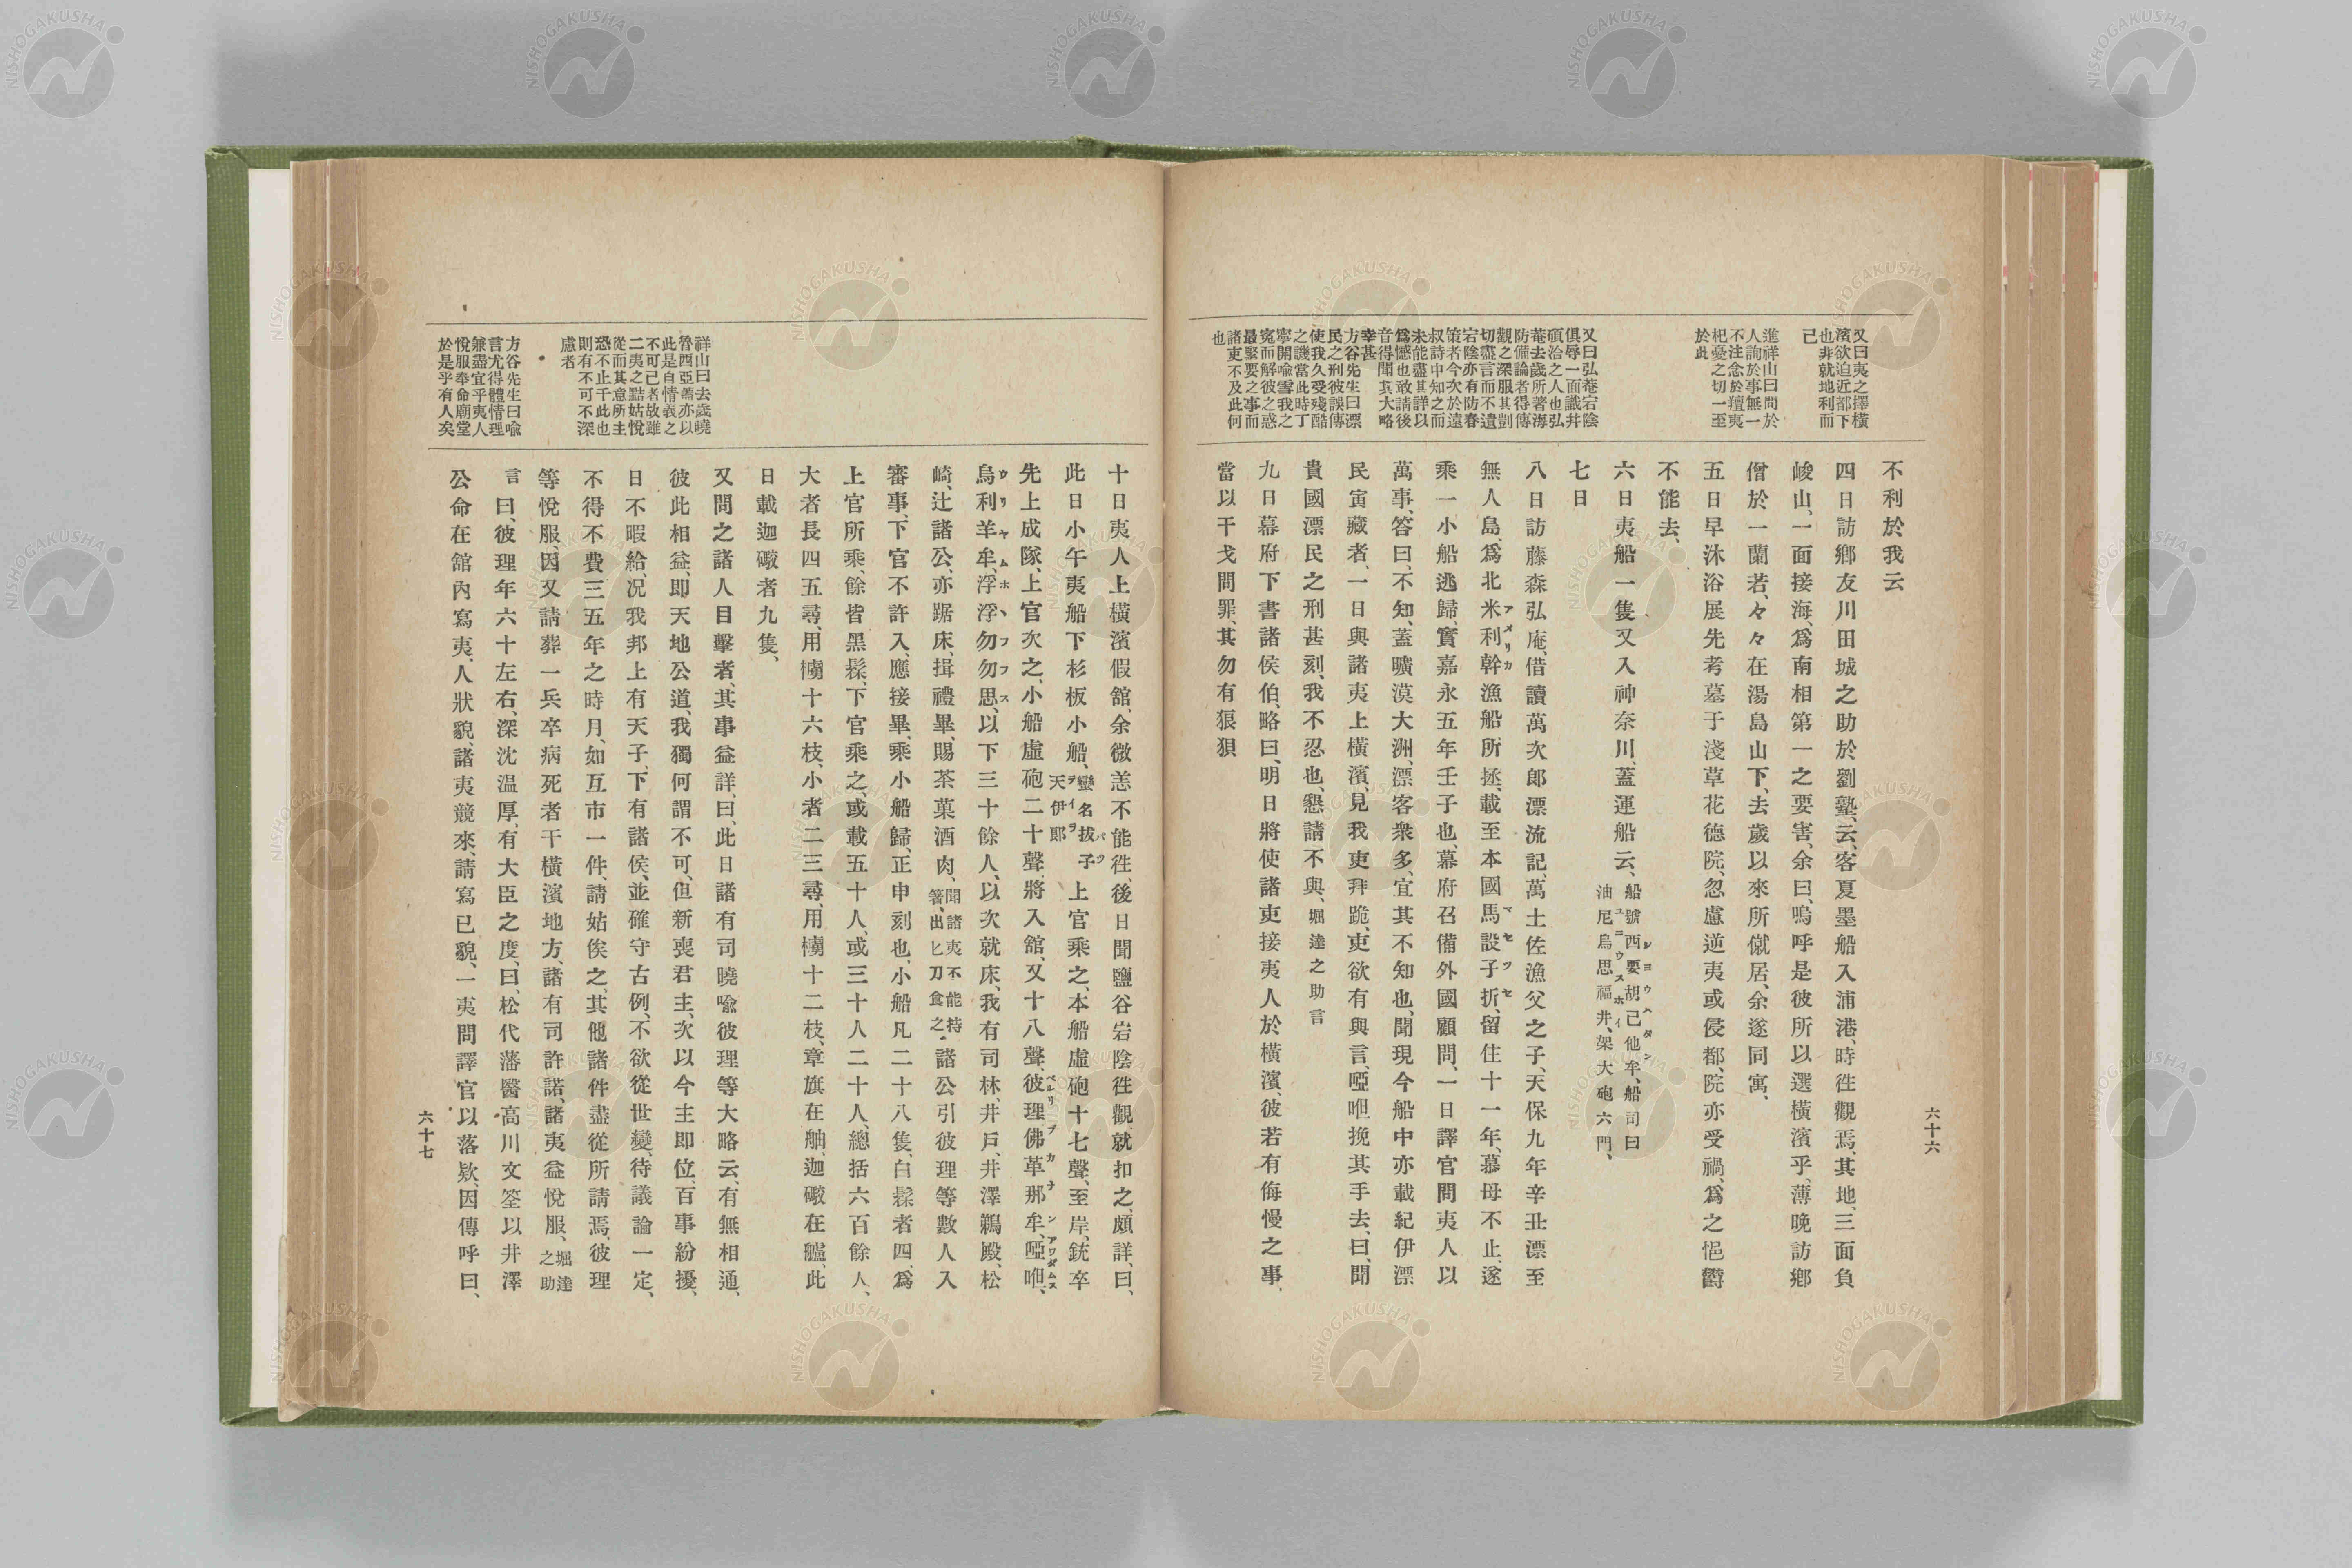 又曰夷之擇橫
濱欲迫近都下
也非就地利而
已
進祥山曰問於
人詢於事無一
不注念於羶夷
杞憂之切一至
於此
又曰弘菴宕陰
俱辱一面識幷
碩治之人也弘
菴去歲所著海
防備論者得傳
觀之深服其剴
切盡言而不遺
宕陰亦有防春
策者今次於遠
叔詩中知之而
未能盡其詳以
爲憾也敢請後
音得聞其大略
幸甚
方谷先生曰漂
民之刑彼誤傳
使我久受殘酷
之譏當此時丁
寧開喩雪我之
寃而解彼之惑
最緊要之事而
諸吏不及此何
也
不利於我云
四日訪鄕友川田城之助於劉塾、云、客夏墨船入浦港、時徃觀焉、其地、三面負
峻山、一面接海、爲南相第一之要害、余曰、嗚呼是彼所以選橫濱乎、薄晚訪鄕
僧於一蘭若、々々在湯島山下、去歲以來所僦居、余遂同寓、
五日早沐浴展先考墓于淺草花德院、忽慮逆夷或侵都、院亦受禍、爲之悒欝
不能去、
六日夷船一隻又入神奈川、蓋運船云、船號西要胡己他牟、船司曰油尼烏思福井、架大砲六門、
七日
八日訪藤森弘庵、借讀萬次郎漂流記、萬土佐漁父之子、天保九年辛丑漂至
無人島、爲北米利幹漁船所拯、載至本國馬設子折、留住十一年、慕母不止、遂
乘一小船逃歸、實嘉永五年壬子也、幕府召備外國顧問、一日譯官問夷人以
萬事、答曰、不知、蓋曠漠大洲、漂客衆多、宜其不知也、聞現今船中亦載紀伊漂
民寅藏者、一日與諸夷上橫濱、見我吏拜跪、吏欲有與言、啞呾挽其手去、曰、聞
貴國漂民之刑甚刻、我不忍也、懇請不與、堀達之助言
九日幕府下書諸侯伯、略曰、明日將使諸吏接夷人於橫濱、彼若有侮慢之事、
當以干戈問罪、其勿有狼狽
六十六
祥山曰去歲曉
喩魯西亞蓋亦以
此是自情義之
不可已者故雖
二夷之黠姑悅
從而其意所主
恐不止于此也
則有不可不深
慮者
方谷先生曰喩
言尤得體情理
兼盡宜乎夷人
悅服奉命廟堂
於是乎有人矣
十日夷人上橫濱假舘、余微恙不能徃、後日聞鹽谷岩陰徃觀、就扣之、頗詳、曰、
此日小午夷船下杉板小船、蠻名拔子天伊郎上官乘之、本船虛砲十七聲、至岸、銃卒
先上成隊、上官次之、小船虛砲二十聲、將入舘、又十八聲、彼理佛革那牟、啞呾、
烏利羊牟、浮浮勿勿思、以下三十餘人、以次就床、我有司林、井戶、井澤、鵜殿、松
崎、辻諸公、亦踞床、揖禮畢、賜茶菓酒肉、聞諸夷不能持箸、出匕刀食之、諸公引彼理等數人入
審事、下官不許入、應接畢、乘小船歸、正申刻也、小船凡二十八隻、白鬆者四、爲
上官所乘、餘皆黑鬆、下官乘之、或載五十人、或三十人二十人、總括六百餘人、
大者長四五尋、用櫓十六枝、小者二三尋、用櫓十二枝、章旗在舳、迦礮在艫、此
日載迦礮者九隻、
又問之諸人目擊者、其事益詳、曰、此日諸有司曉喩彼理等大略云、有無相通、
彼此相益、即天地公道、我獨何謂不可、但新喪君主、次以今主即位、百事紛擾、
日不暇給、况我邦上有天子、下有諸侯、並確守古例、不欲從世變、待議論一定、
不得不費三五年之時月、如互市一件、請姑俟之、其他諸件盡從所請焉、彼理
等悅服、因又請葬一兵卒病死者于橫濱地方、諸有司許諾、諸夷益悅服、堀達之助
言曰、彼理年六十左右、深沈温厚、有大臣之度、曰、松代藩醫高川文筌以井澤
公命在舘內寫夷、人狀貌、諸夷競來、請寫己貌、一夷問譯官以落欵、因傳呼曰、
六十七